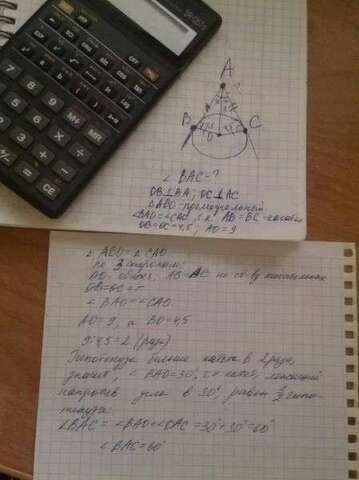 A
B
C
O
4,5
∠BAC=?
OB⊥BA; OC⊥AC
△ABO - прямоугольный
∠BAO=∠CAO, т.к. AB=BC - касател
OB=OC=4,5; AO=9
△ABO=△CAO
по 3 сторонам:
AO - общая, AB=AC по св-ву касательных
OB=OC=r
∠BAO=∠CAO
AO=9, а BO=4,5
9:4,5=2 (раза)
Гипотенуза больше катета в 2 раза,
значит, ∠BAO=30°, т.к катет, лежащий
напротив угла в 30°, равен ½ гипо-
тенузы.
∠BAC=∠BAO+∠OAC=30°+30°=60°
∠BAC=60°